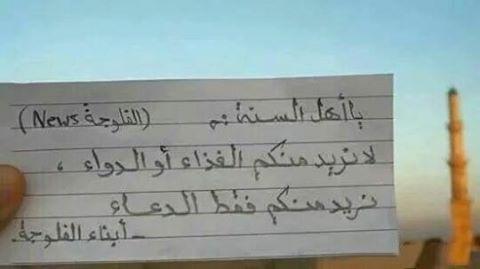 ياأهل السنة :م (الفلوجة News)
لا نريد منكم الغذاء أو الدواء ،
نريد منكم فقط الدعاء
- أبناء الفلوجة -